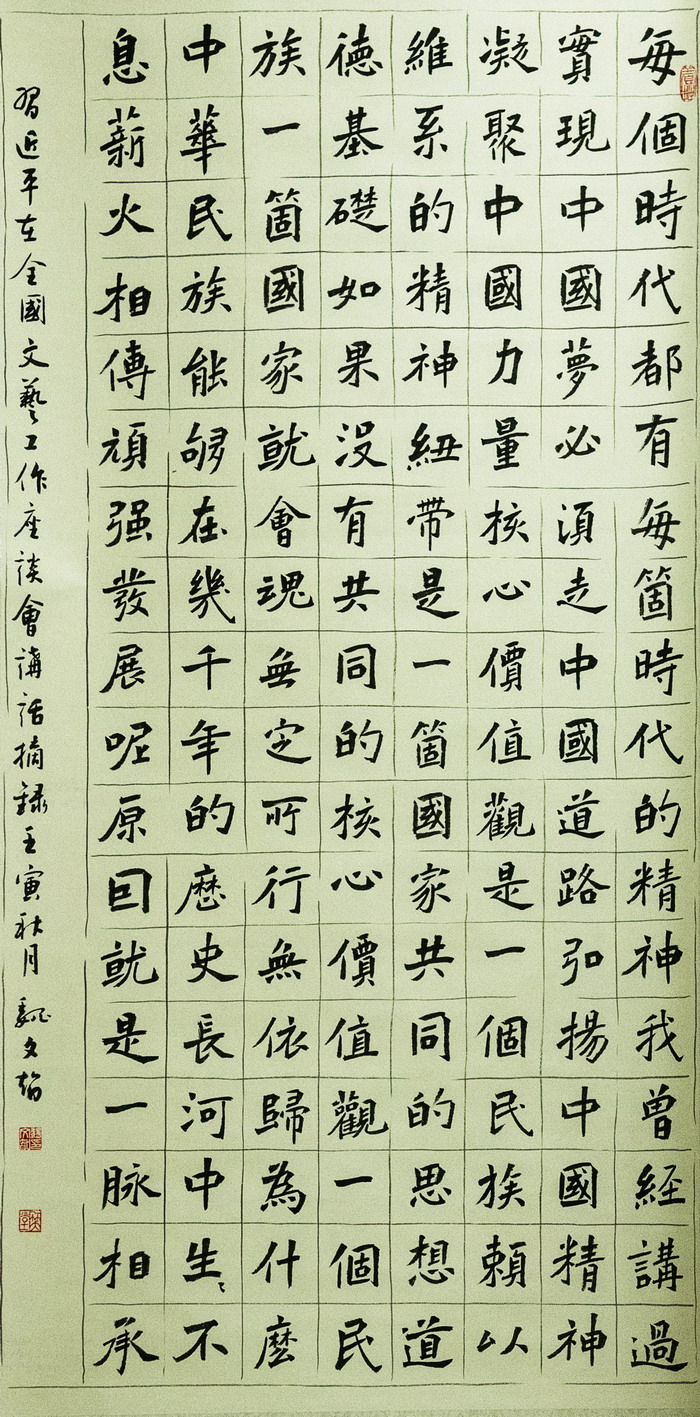 每個時代都有每箇時代的精神我曾經講過
實現中國夢必須走中國道路弘揚中國精神
凝聚中國力量核心價值觀是一個民族賴以
維系的精神紐帶是一箇國家共同的思想道
德基礎如果没有共同的核心價值觀一個民
族一箇國家就會魂無定所行無依歸為什麽
中華民族能够在幾千年的歷史長河中生〻不
息薪火相傳頑强發展呢原因就是一脉相承
習近平在全國文藝工作座談會講話摘録壬寅秋月 魏文韜